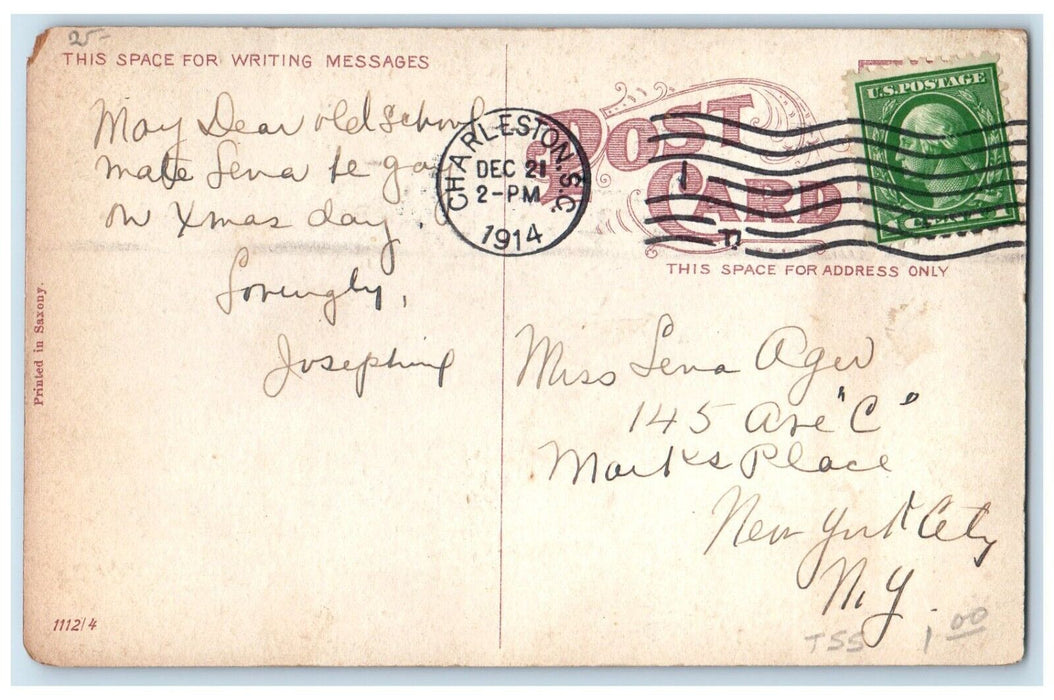 25-
THIS SPACE FOR WRITING MESSAGES
May Dear old School
mate Lena be ga
on Xmas day.
Lovingly,
Josephine
Printed in Saxony.
1112/4
POST
CARD
CHARLESTON, S.C.
DEC 21
2-PM
1914
1
U.S. POSTAGE
1
THIS SPACE FOR ADDRESS ONLY
Miss Lena Ager
145 Ave "C"
Marks Place
New York City
N.Y.
TSS 1.00